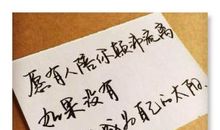 愿有人陪你颠沛流离
如果没有
成为自己的太阳.